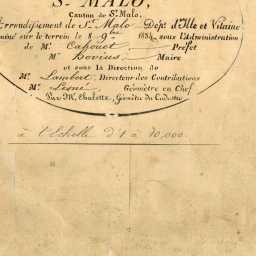 St. MALO,
Canton de St. Malo,
Arrondissement de St. Malo Dépt. d'Ille et Vilaine
miné sur le terrein le 8 9bre 1834 sous l'Administration
de Mr. Cahouet Préfet
Mr. Hovius Maire
et sous la Direction de
Mr. Lambert, Directeur des Contributions
Mr. Lesné Géomètre en Chef
Par Mr. Chalette, Géomètre du Cadastre
à l'Echelle d'1 à 10,000.